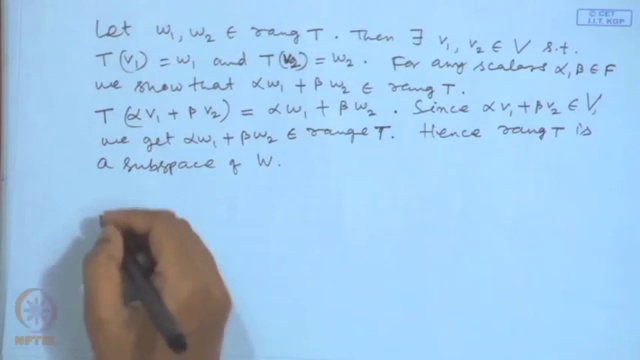 © CET
I.I.T. KGP
Let w₁, w₂ ∈ rang T. Then ∃ v₁, v₂ ∈ V s.t.
T(v₁) = w₁ and T(v₂) = w₂. For any scalars α, β ∈ F
we show that αw₁ + βw₂ ∈ rang T.
T(αv₁ + βv₂) = αw₁ + βw₂. Since αv₁ + βv₂ ∈ V,
we get αw₁ + βw₂ ∈ range T. Hence rang T is
a subspace of W.
NPTEL